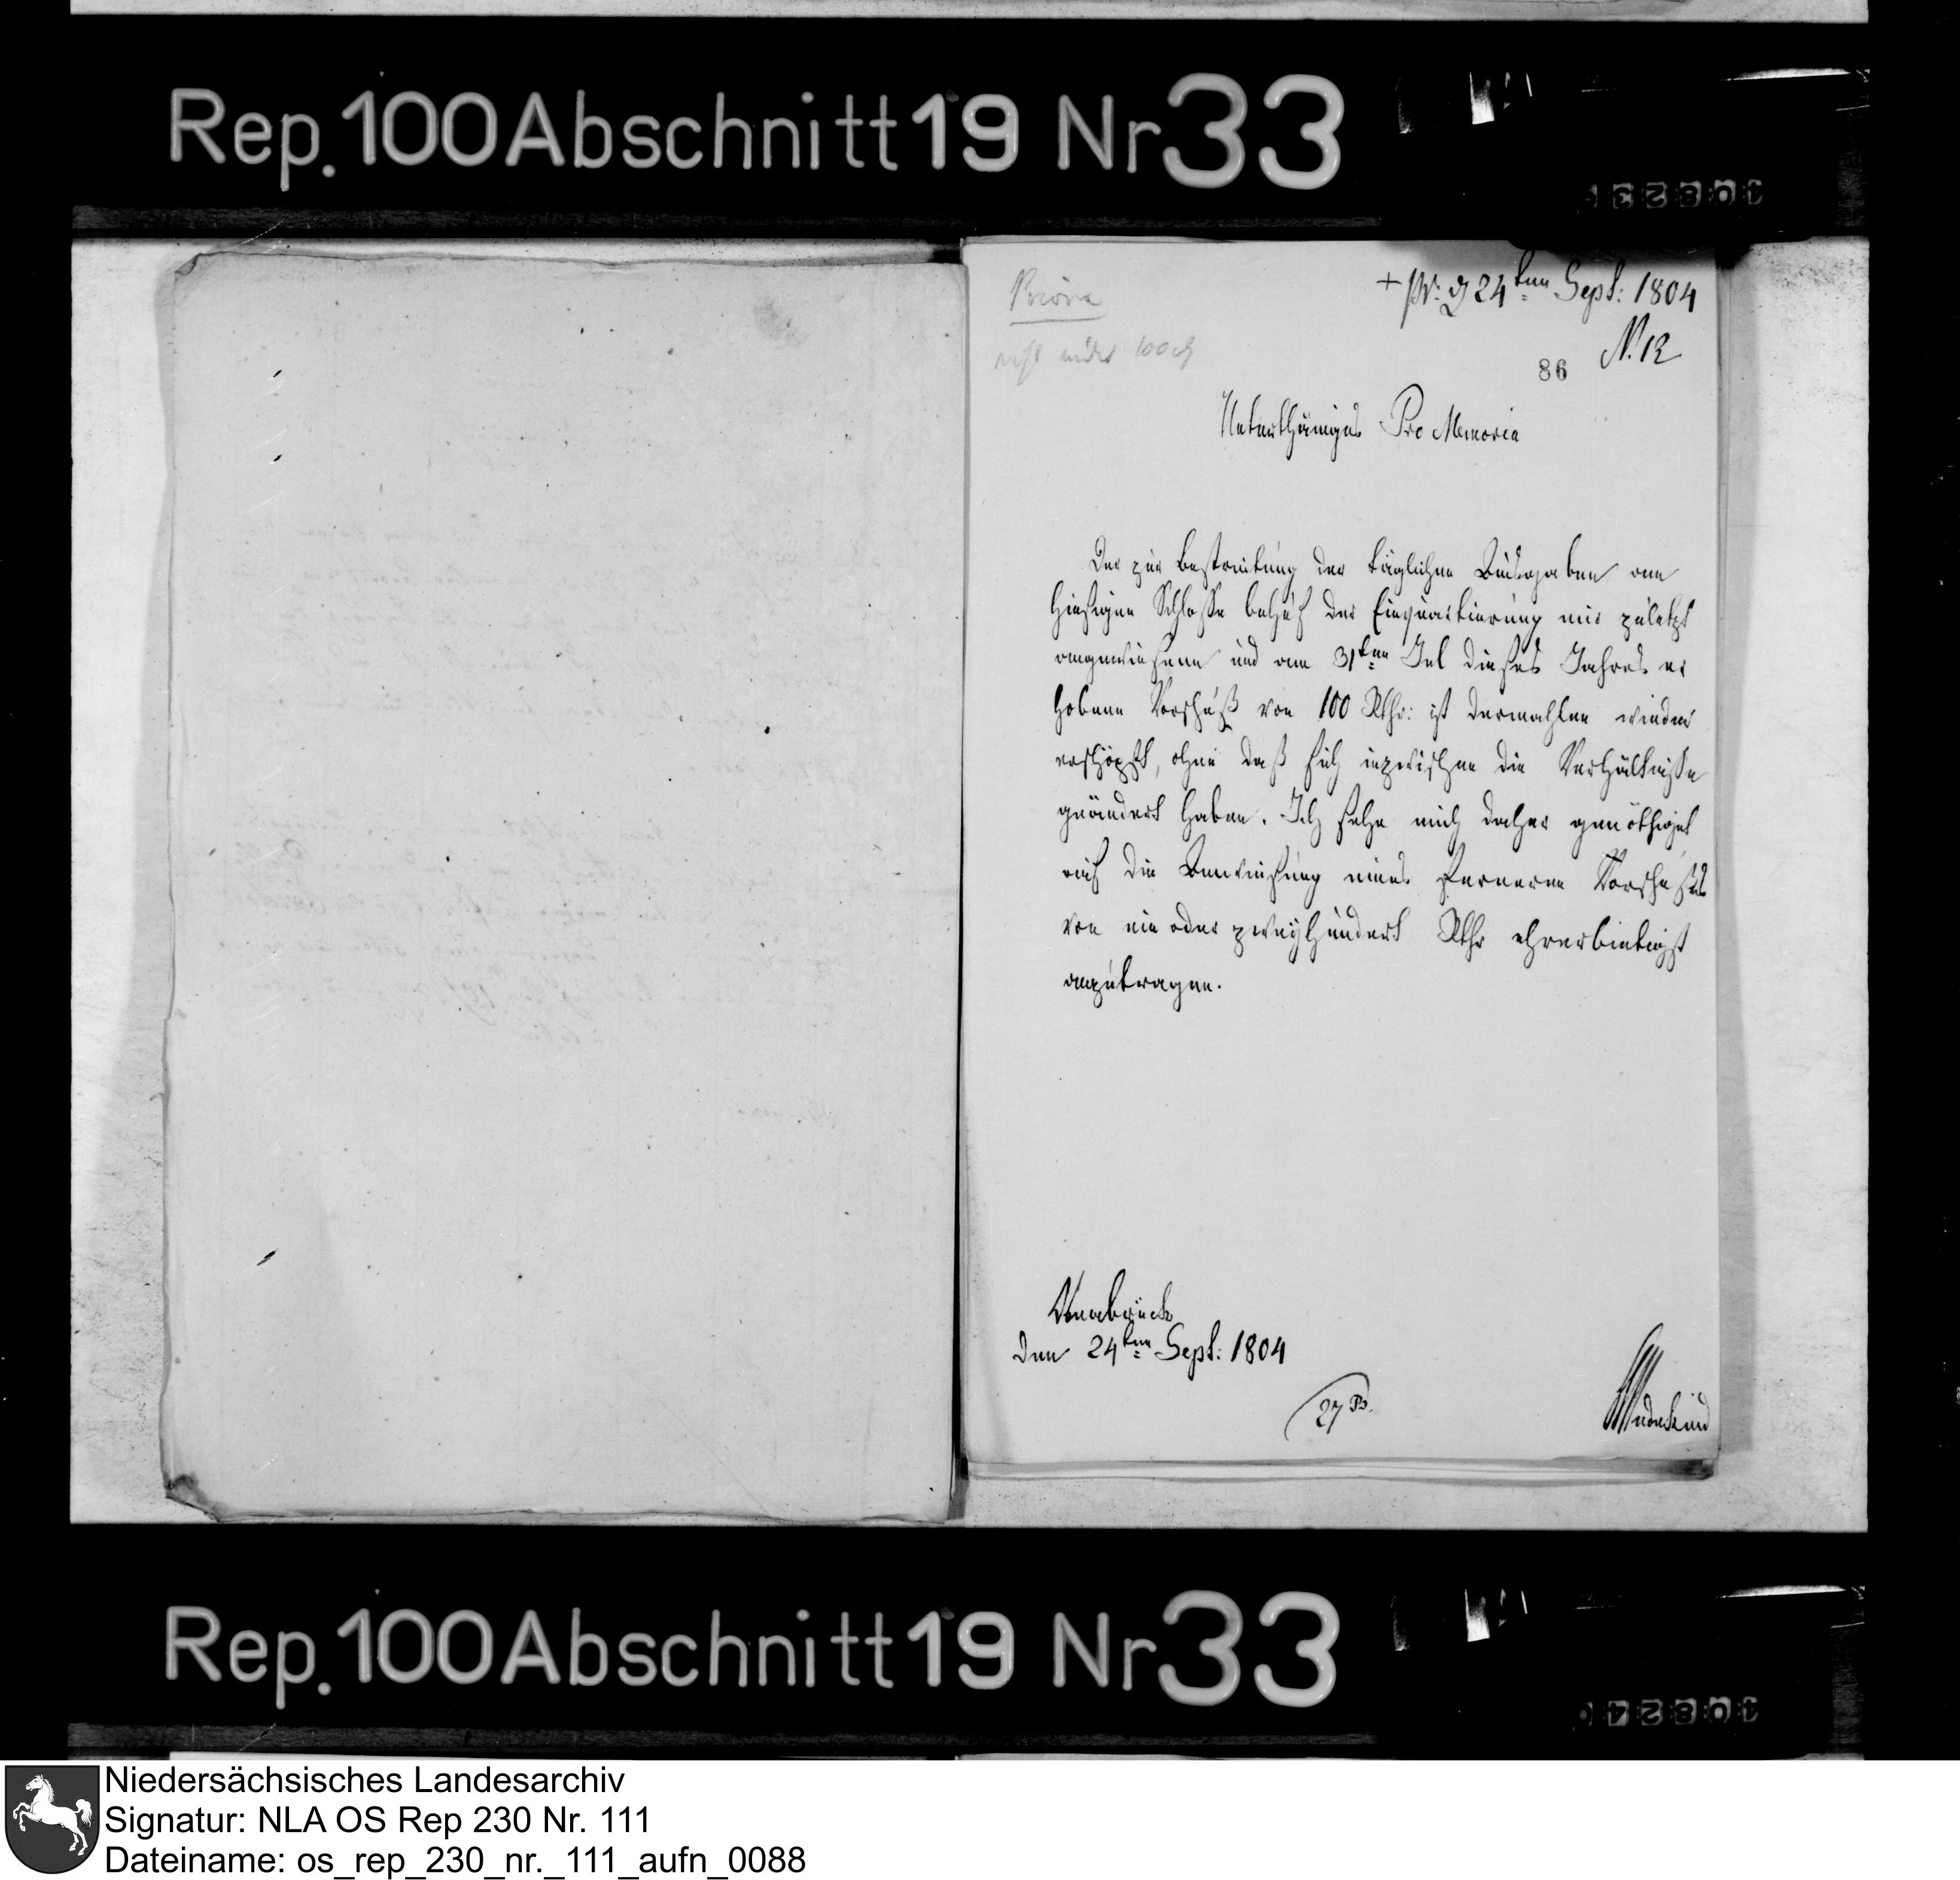 Rep. 100 Abschnitt 19 Nr 33
Priora
100
+ pr: d 24ten Sept: 1804
N. 12
86
Unterthäniges Pro Memoria
Der zur Bestreitung der täglichen Ausgaben am
hiesigen Schlosse behuf der Einquartierung mir zuletzt
angewiesene und am 31ten Jul dieses Jahres er
hobene Vorschuß von 100 Rthr: ist dermahlen wieder
erschöpft, ohne daß sich inzwischen die Verhältnisse
geändert haben. Ich sehe mich daher genöthiget
auf die Anweisung eines ferneren Vorschußes
von ein oder zweyhundert Rthr ehrerbietigst
anzutragen.
Osnabrück
den 24ten Sept: 1804
27
Wedekind
Rep. 100 Abschnitt 19 Nr 33
Niedersächsisches Landesarchiv
Signatur: NLA OS Rep 230 Nr. 111
Dateiname: os_rep_230_nr._111_aufn_0088